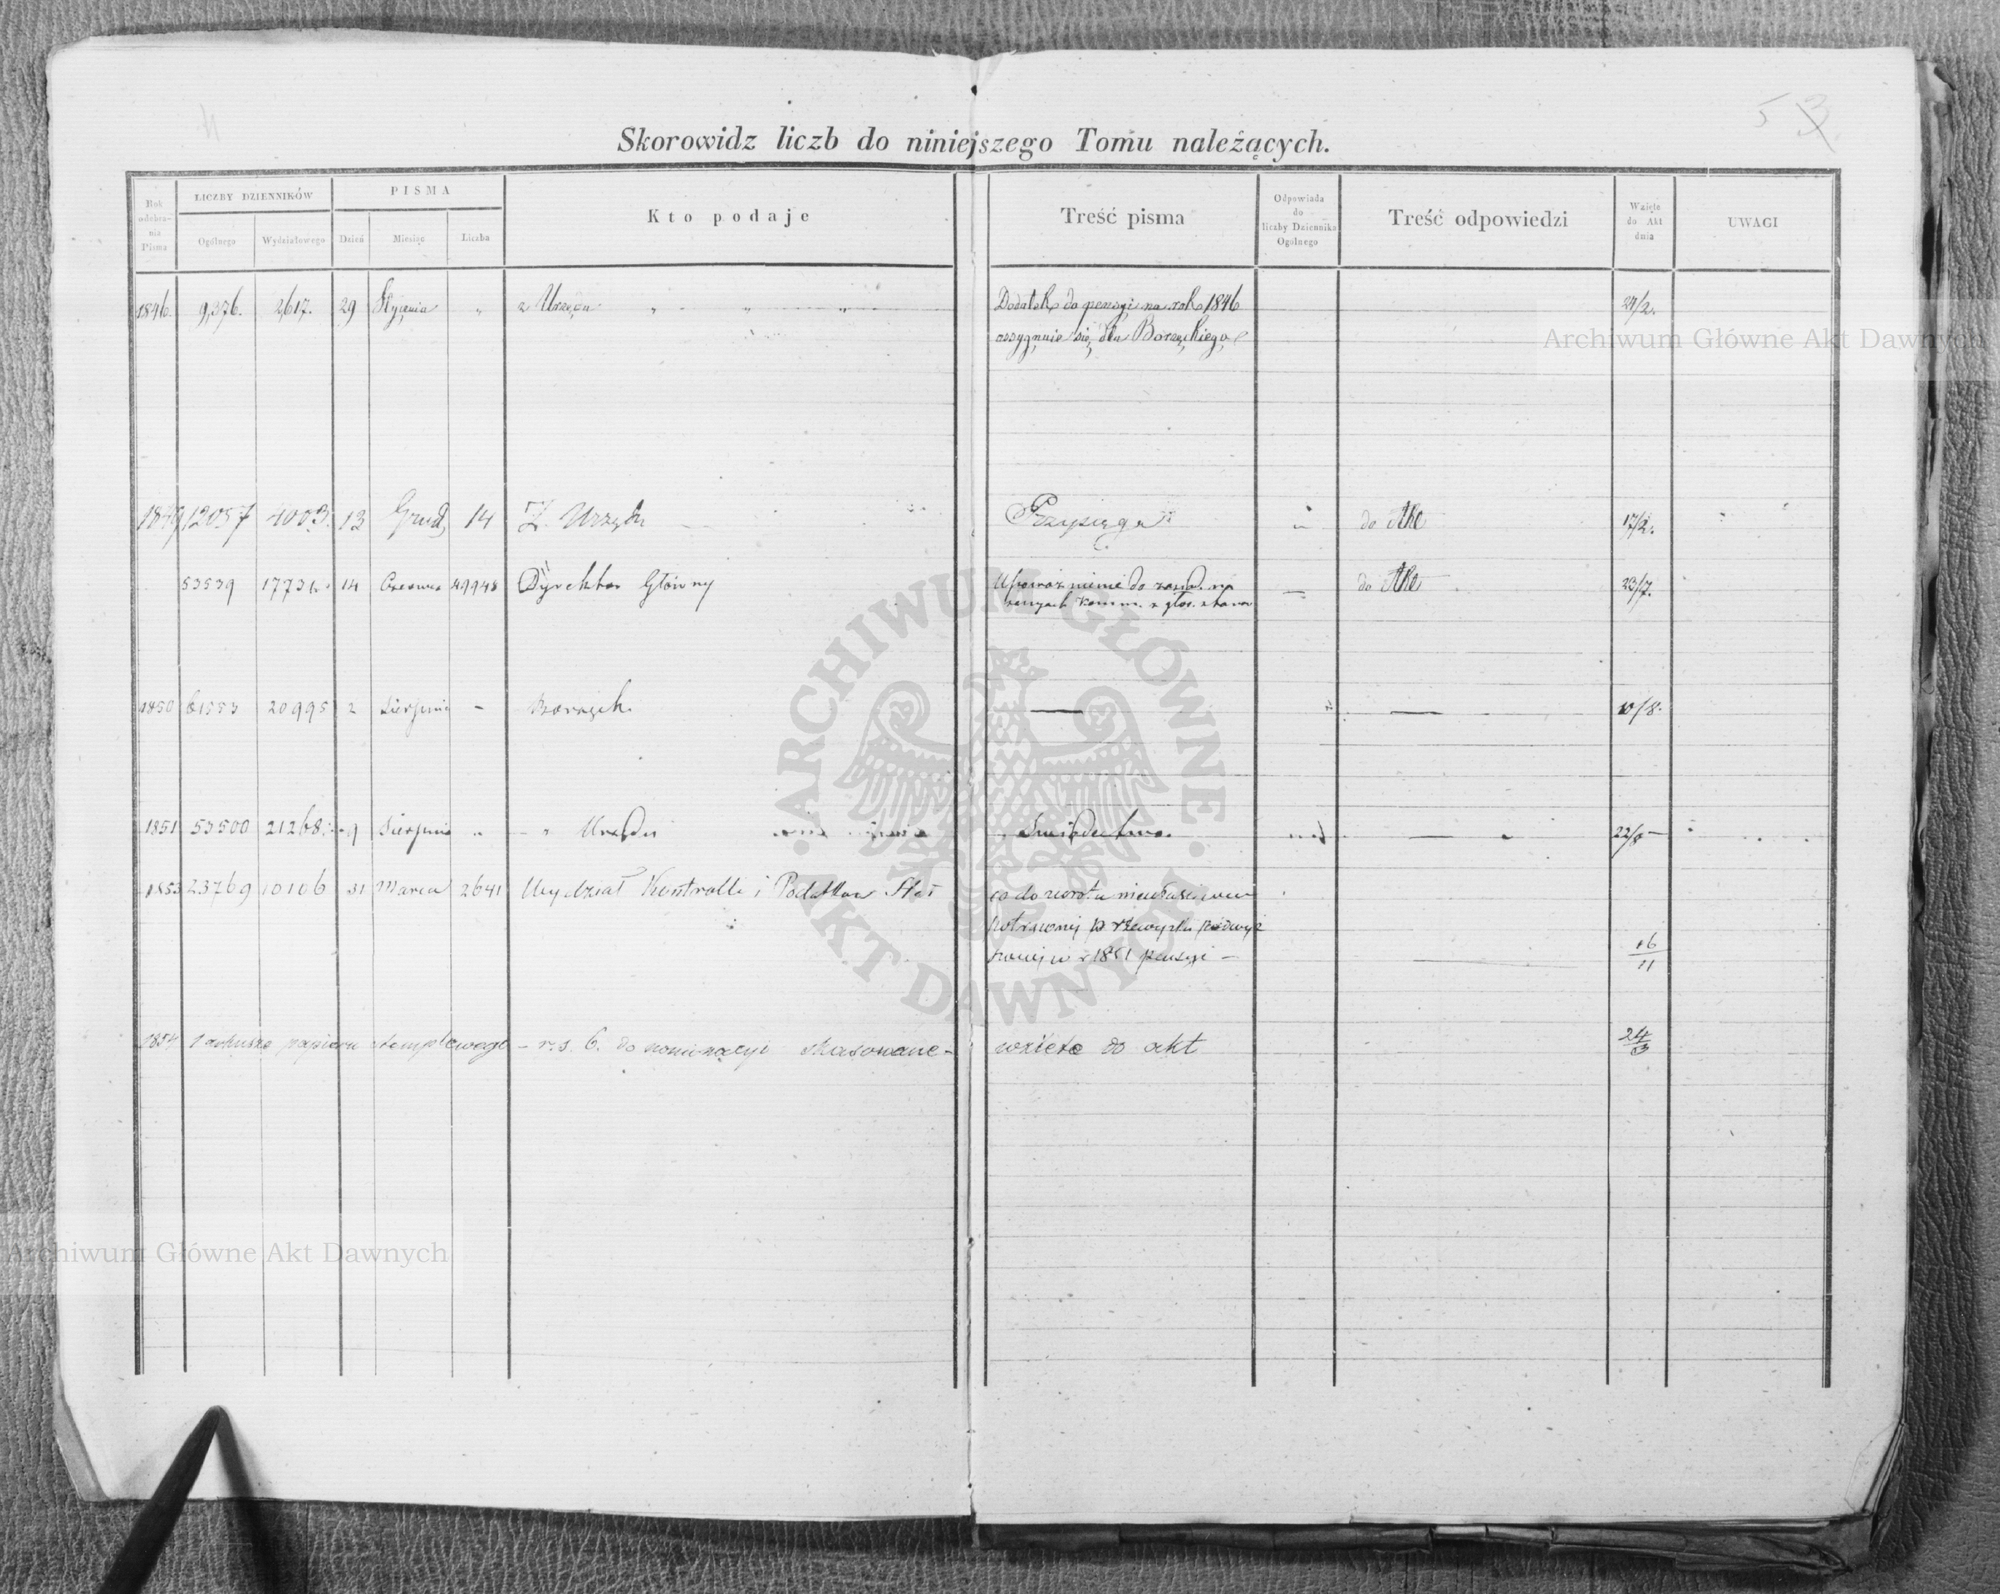 53
Skorowidz liczb do niniejszego Tomu należących.
Rok odebrania Pisma
LICZBY DZIENNIKÓW
Ogólnego
Wydziałowego
PISMA
Dzień
Miesiąc
Liczba
Kto podaje
Treść pisma
Odpowiada do liczby Dziennika Ogólnego
Treść odpowiedzi
Wzięte do Akt dnia
UWAGI
1846. 9,376. 2,617. 29 Stycznia " z Urzędu " " " Dodatek do pensyi na rok 1846 24/2.
assygnuie się dla Borzęckiego
1849 12057 4003. 13 Grud. 14 Z Urzędu Przysięga " do Akt 17/2.
53539 14 Czerwca 49948 Dyrektor Główny Upoważnienie do — do Akt 23/7.
1850 61553 20995 2 Sierpnia - — — 10/8.
1851 53500 21268 9 Sierpnia " " Urzędu Świadectwo. — 22/8 —
1853 23769 10106 31 Marca 2641 Wydział Kontrolli i Podatków Stał co do zwrotu niewłaściwie
potrąconej
w r 1851 pensyi — 16/11
1854 1 arkusz papieru stemplowego — rs. 6. do nominacyi skasowane — wzięto do akt 24/3
Archiwum Główne Akt Dawnych
ARCHIWUM GŁÓWNE AKT DAWNYCH
Archiwum Główne Akt Dawnych